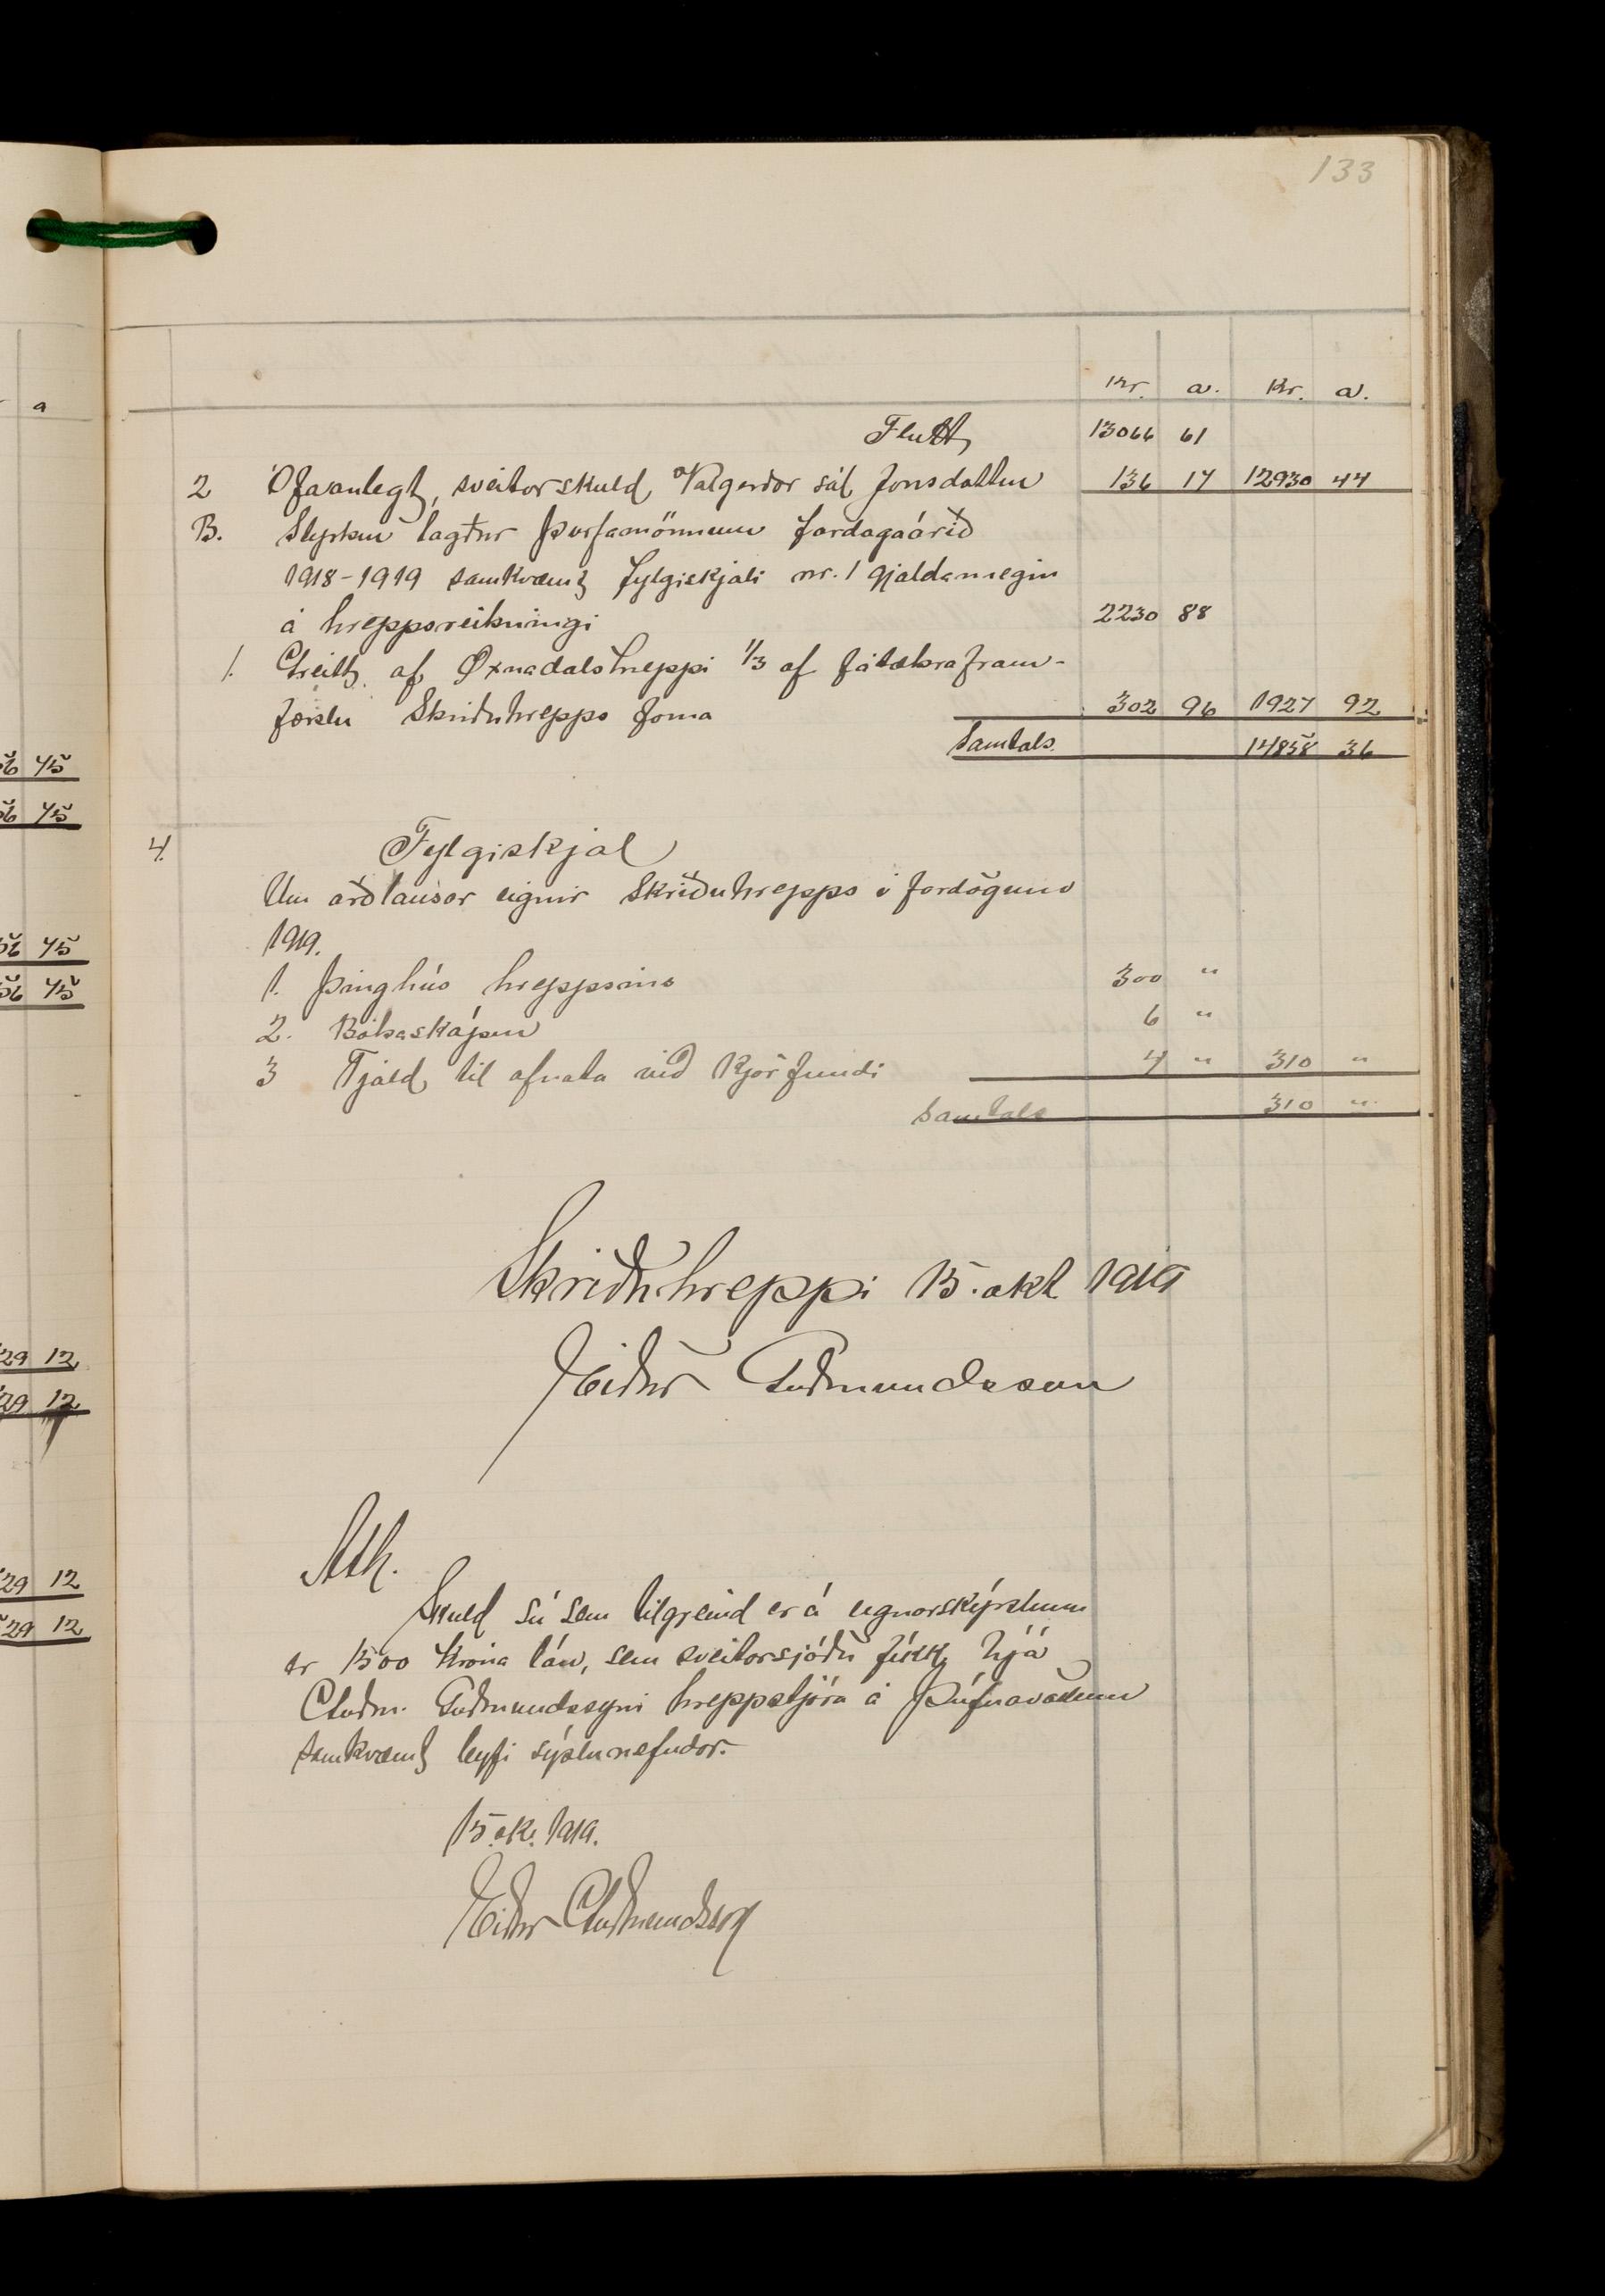 133
kr. a. kr. a.
Flutt 13066 61
2 Ófáanlegt, sveitarskuld Valgerðar sál. Jónsdóttur 136 17 12930 44
B. Styrkur lagður þurfamönnum fardagaárið
1918-1919 samkvæmt fylgiskjali nr. 1 gjaldamegin
á hreppsreikningi 2230 88
1. Greitt af Øxnadalshreppi 1/3 af fátækrafram-
færslu Skriðuhrepps forna 302 96 1927 92
Samtals. 14858 36
4. Fylgiskjal
Um arðlausar eignir Skriðuhrepps í fardögum
1919.
1. Þinghús hreppsins 300 "
2. Bókaskápur 6 "
3 Tjald til afnota við kjörfundi 4 " 310 "
Samtals 310 "
Skriðuhreppi 15. okt 1919
Eiður Guðmundsson
Ath.
Skuld sú sem tilgreind er á eignarskýrslunni
er 1500 króna lán, sem sveitarsjóður fékk hjá
Guðm. Guðmundssyni hreppstjóra á Þúfnavöllum
samkvæmt leyfi sýslunefndar.
15. ok. 1919.
Eiður Guðmundsson
a
56 45
56 45
56 45
56 45
29 12
29 12
29 12
29 12